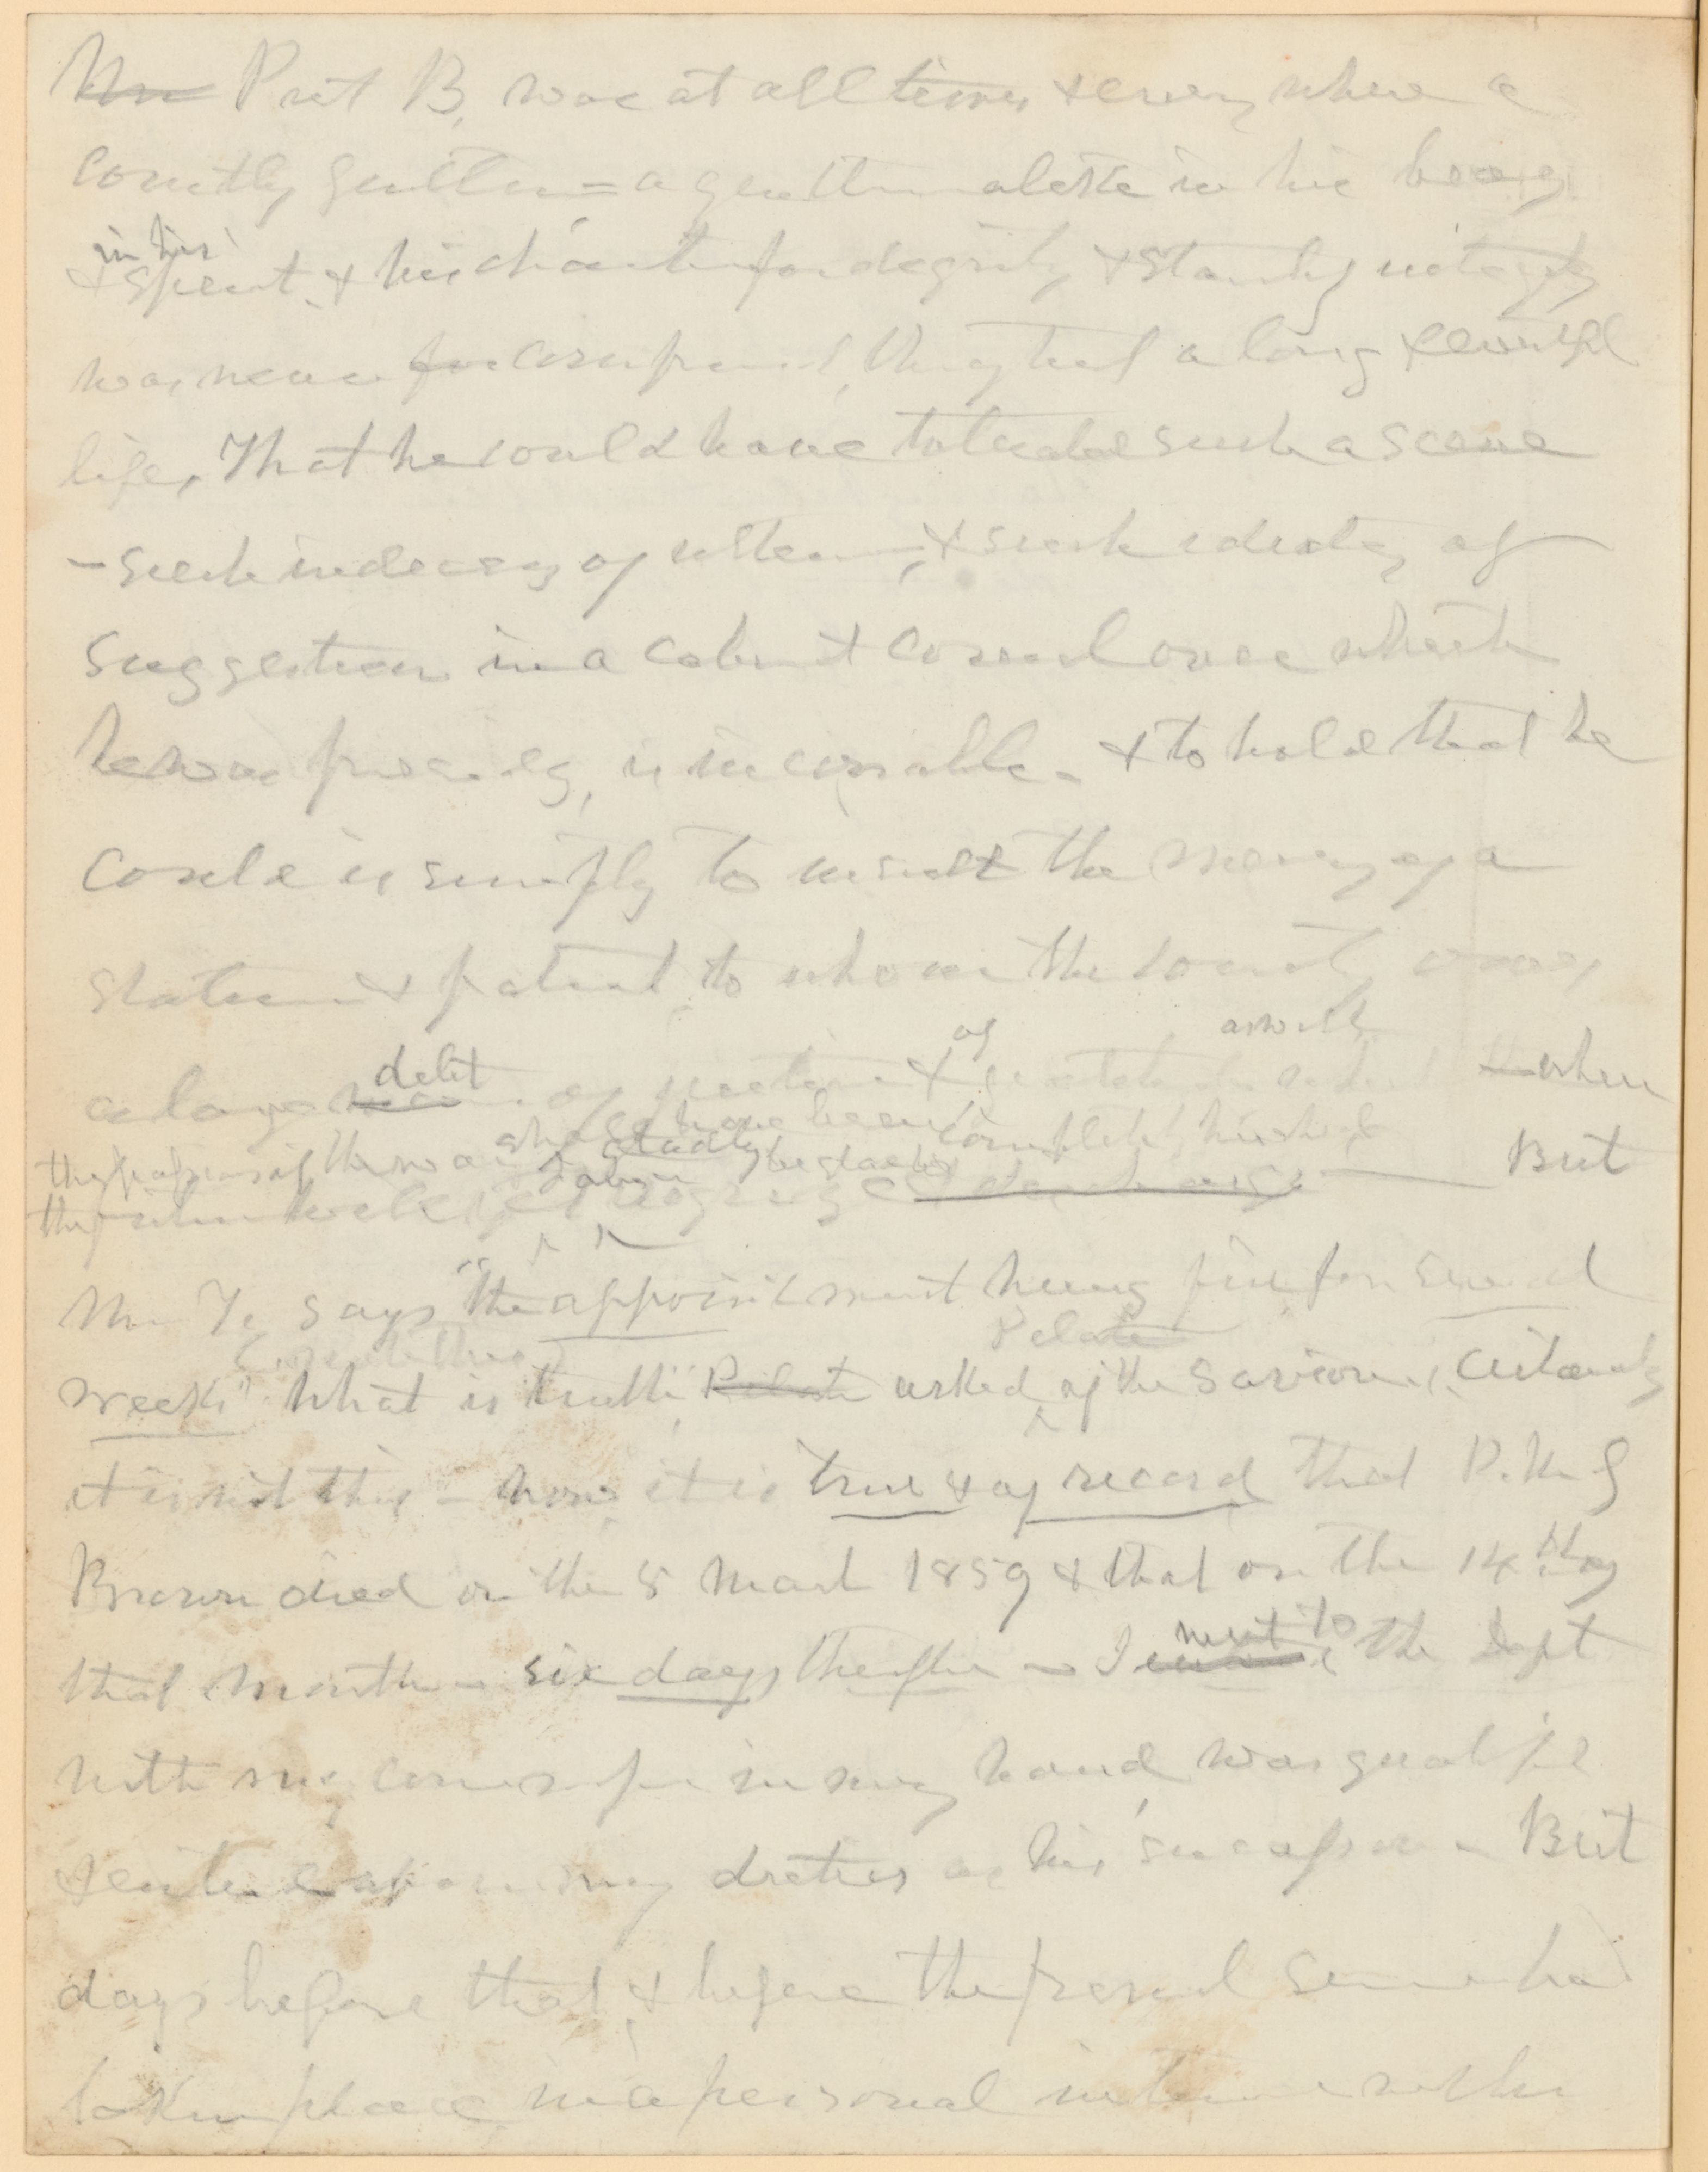 Mr Prest B, was at all times & every where a
courtly gentlem = a gentleman alike in his being
in his
& spirit, & his character for dignity & stanly integrity
was never for compromised, through a long & eventful
life, That he would have tolerated such a scene
- such indecency of utterance, & such idiotcy of
suggestion in a cabinet council over which
he was presiding, is incredible - & to hold that he
could is simply to insult the memory of a
statesman & patriot, to whom the country owes
of as well
debt
a large of & gratitude when
have been completely hushed
the passions of the war shall But
Mr T. says "the appointment hung fire for several
Pilate
weeks" What is truth, Pilate asked of the Saviour. Certainly
it is not this - now it is true & of record that P.M G
Brown died on the 8 March 1859 & that on the 14th day
that month - six days thereafter - I went to the Dept
with my commission in my hand, was qualified
& entered upon my duties as his successor - But
days before that, & before the funeral service had
taken place, in a personal interview with